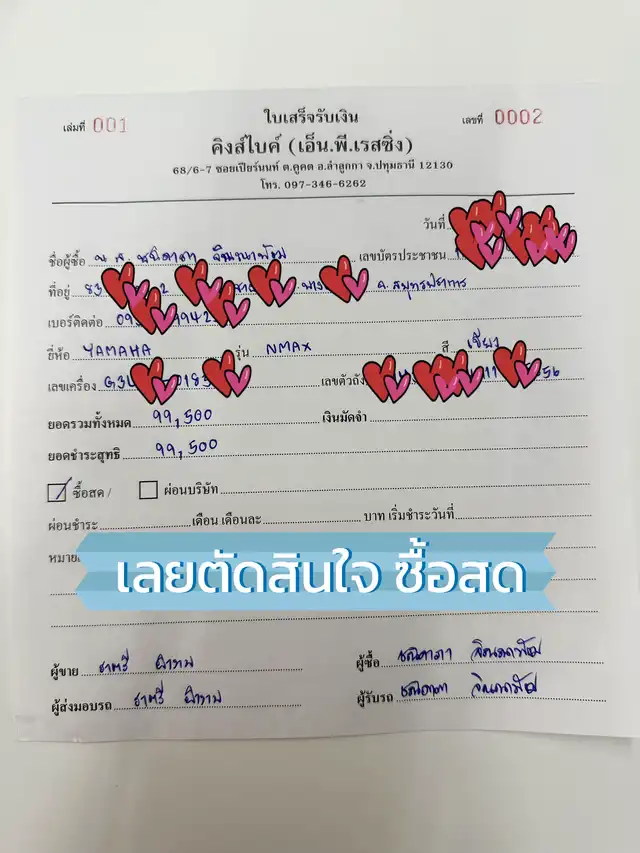 ใบเสร็จรับเงิน
เล่มที่ 001 เลขที่ 0002
คิงส์ไบค์ (เอ็น.พี.เรสซิ่ง)
68/6-7 ซอยเปียร์นนท์ ต.คูคต อ.ลำลูกกา จ.ปทุมธานี 12130
โทร. 097-346-6262
วันที่
ชื่อผู้ซื้อ น.ส. เลขบัตรประชาชน
ที่อยู่ 83 2 บาง จ.สมุทรปราการ
เบอร์ติดต่อ 09 942
ยี่ห้อ YAMAHA รุ่น NMAX สี เขียว
เลขเครื่อง G3L 0183 เลขตัวถัง 11 56
ยอดรวมทั้งหมด 99,500 เงินมัดจำ
ยอดชำระสุทธิ 99,500
ซื้อสด / ผ่อนบริษัท
ผ่อนชำระ เดือน เดือนละ บาท เริ่มชำระวันที่
เลยตัดสินใจ ซื้อสด
ผู้ขาย ผู้ซื้อ
ผู้ส่งมอบรถ ผู้รับรถ